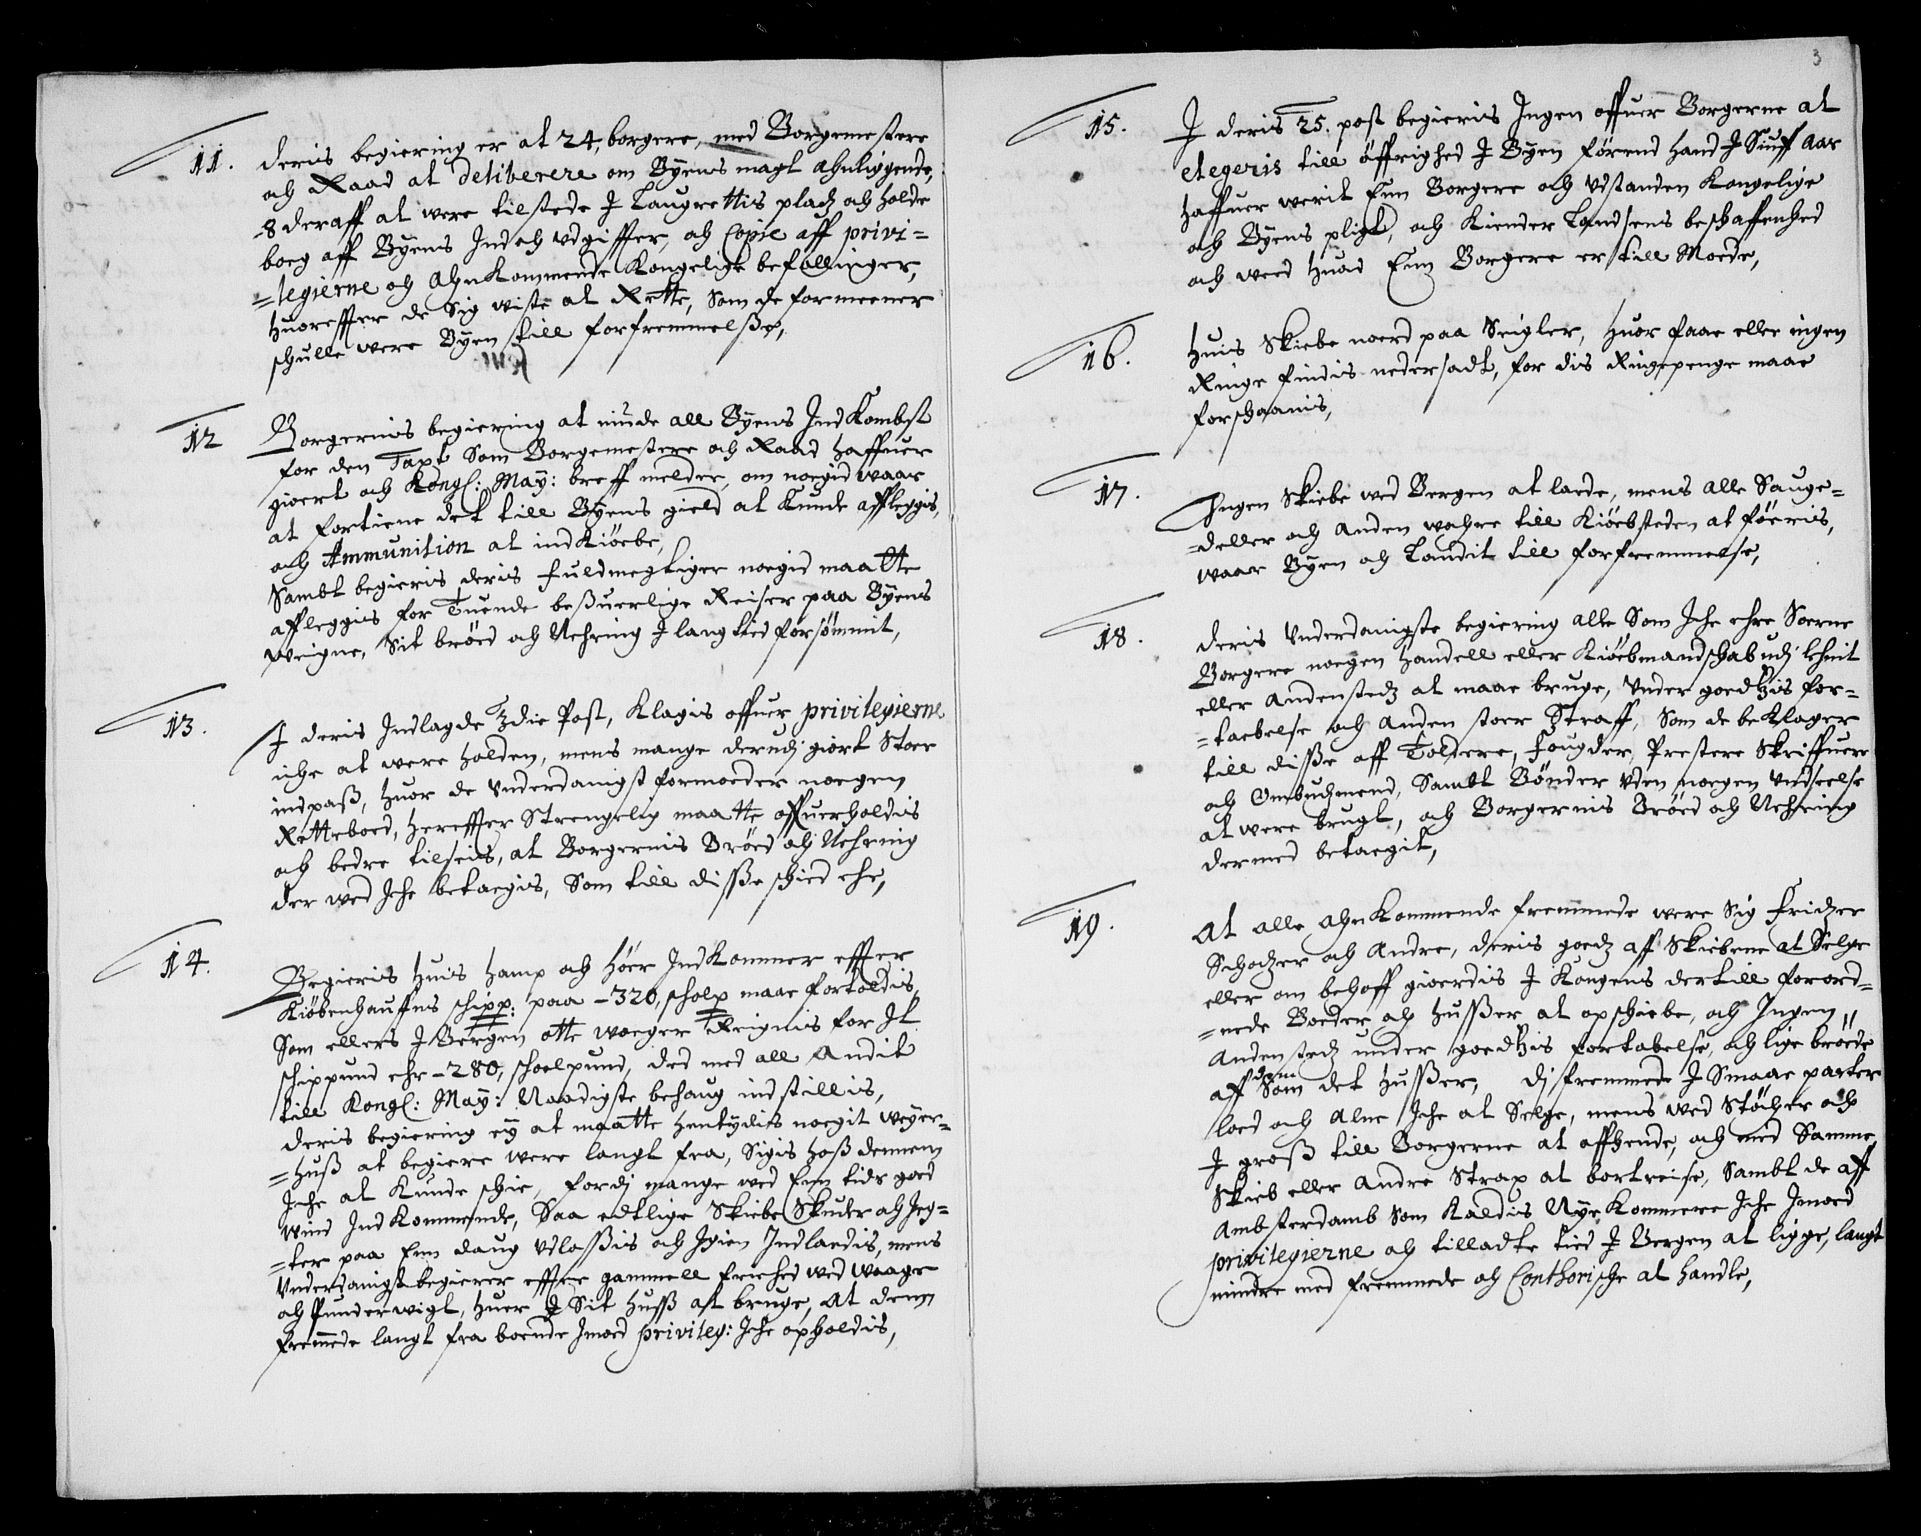 11. Deris begiering er at 24, borgere, med Borgemestere
och Raad at delibere om Byens magt Ahnliggende,
-8 deraff at were tilstede J Laugrettis platz och holde
boeg aff Byens Ind och Vdgiffter, och Copie aff privi=
=legierne och AhnKommende Kongelige befallinger,
huoreffter de Sig wiste at Rette, Som de formeener
schulle were Byen till forfremmelße,
12 Borgernis begiering at niude all Byens IndKombst
for den Taxt Som Borgemestere och Raad Haffuer
giort och Kongl: May: breff melder, om noegid waar
at fortiene det till Byens gield at Kunde affleggis,
och Ammunition at indKiöebe,
Sambt begieris deris fuldmegtiger noegid maatte
affleggis for Tuende beßuerlige Reiser paa Byens
weigne, Sit bröed och Nehring J lang tied forsömmit,
13. J deris Indlagde 3die Post, Klagis offuer privilegierne
iche at were holden, mens mange derudj giort Stoer
indpaß, huor de Vnderdanigst formoeder noegen
Retteboed, hereffter Strengelig maatte offuerholdis
och bedre tilseis, at Borgernis Bröed och Nehring
der wed Jche betaegis, Som till disße schied ehr,
14. Begieris huis hamp och höer IndKommer effter
Kiöbenhauffns schipp: paa -320, scholp maae fortoldis,
Som ellers J Bergen otte woeger Reignis for Jt
schippund ehr -280, schoelpund, ded med all Andit
till Kongl: May: Naadigste behaug indstillis,
deris begiering ey at maatte hentydis noegit weyer=
=Huß at begiere were langt fra, Sigis hoß dennem
Jche at Kunde schie, fordj mange wed Enn tidr goed
wind IndKommende, Saa edtlige Skiebe Skuder och Jeg=
=ter paa Enn daug Vdloßis och Jgien Indlaedis, mens
Vnderdanigst begierer effter gammell friehed wed waage
och Punderwigt, huer J Sit Husß at bruge, At denn
fremmede langt fra boende Jmoed privileg: Jche opholdis,
3
15. J deris 25. post begieris Ingen offuer Borgerne at
elegeris till öffrighed J Byen förend hand J Siuff Aar
haffuer werit Enn Borgere och Vdstanden Kongelige
och Byens pligt, och Kiender Landsens beschaffenhed
och weed huad Enn Borgere er till Moede,
16. Huis Skiebe noerd paa Seigler, huor faae eller ingen
Ringe findis nedersadt, for dis Ringepenge maae
forschaanis,
17. Ingen Skiebe wed Bergen at laede, mens alle Sauge=
=deller och Anden wahre till Kiöebsteden at föeris,
waar Byen och Landit till forfremmelse,
18. Deris Vnderdanigste begiering alle Som Jche ehre Soerne
Borgere noegen Handell eller Kiöebmandschab udj lehnit
eller Andenstedz at maae bruge, Vnder goedhis for=
=tabelse och Anden stoer Straff, Som de beKlager
till disße aff Toldere, Fougder, Prestere Skriffuere
och Ombudzmend, Sambt Bönder Vden noegen Vndseelse
at were brugt, och Borgernis Bröed och Nehring
dermed betaegit,
19. At alle AhnKommende fremmede were Sig Fridzer
Schodzer och Andre, deris goedz aff Skibene at Selge
eller om behoff giordis J Kongens dertill forord=
=nede Boeder och Husßer at opschiebe, och Ingen
Andenstedz under goedhis fortabelse, och lige bröede
aff dem Som det husßer, dj fremmede J Smaae parter
loed och Alne Jche at Selge, mens wed Stöcher och
J groß till Borgerne at affhende, och med Samme
Skieb eller Andre Strax at bortreise, Sambt de aff
Ambsterdamb Som Kaldis NyeKommere Jche Jmoed
privilegierne och tilladte tied J Bergen at ligge, langt
mindre med fremmede och Conthorische at handle,